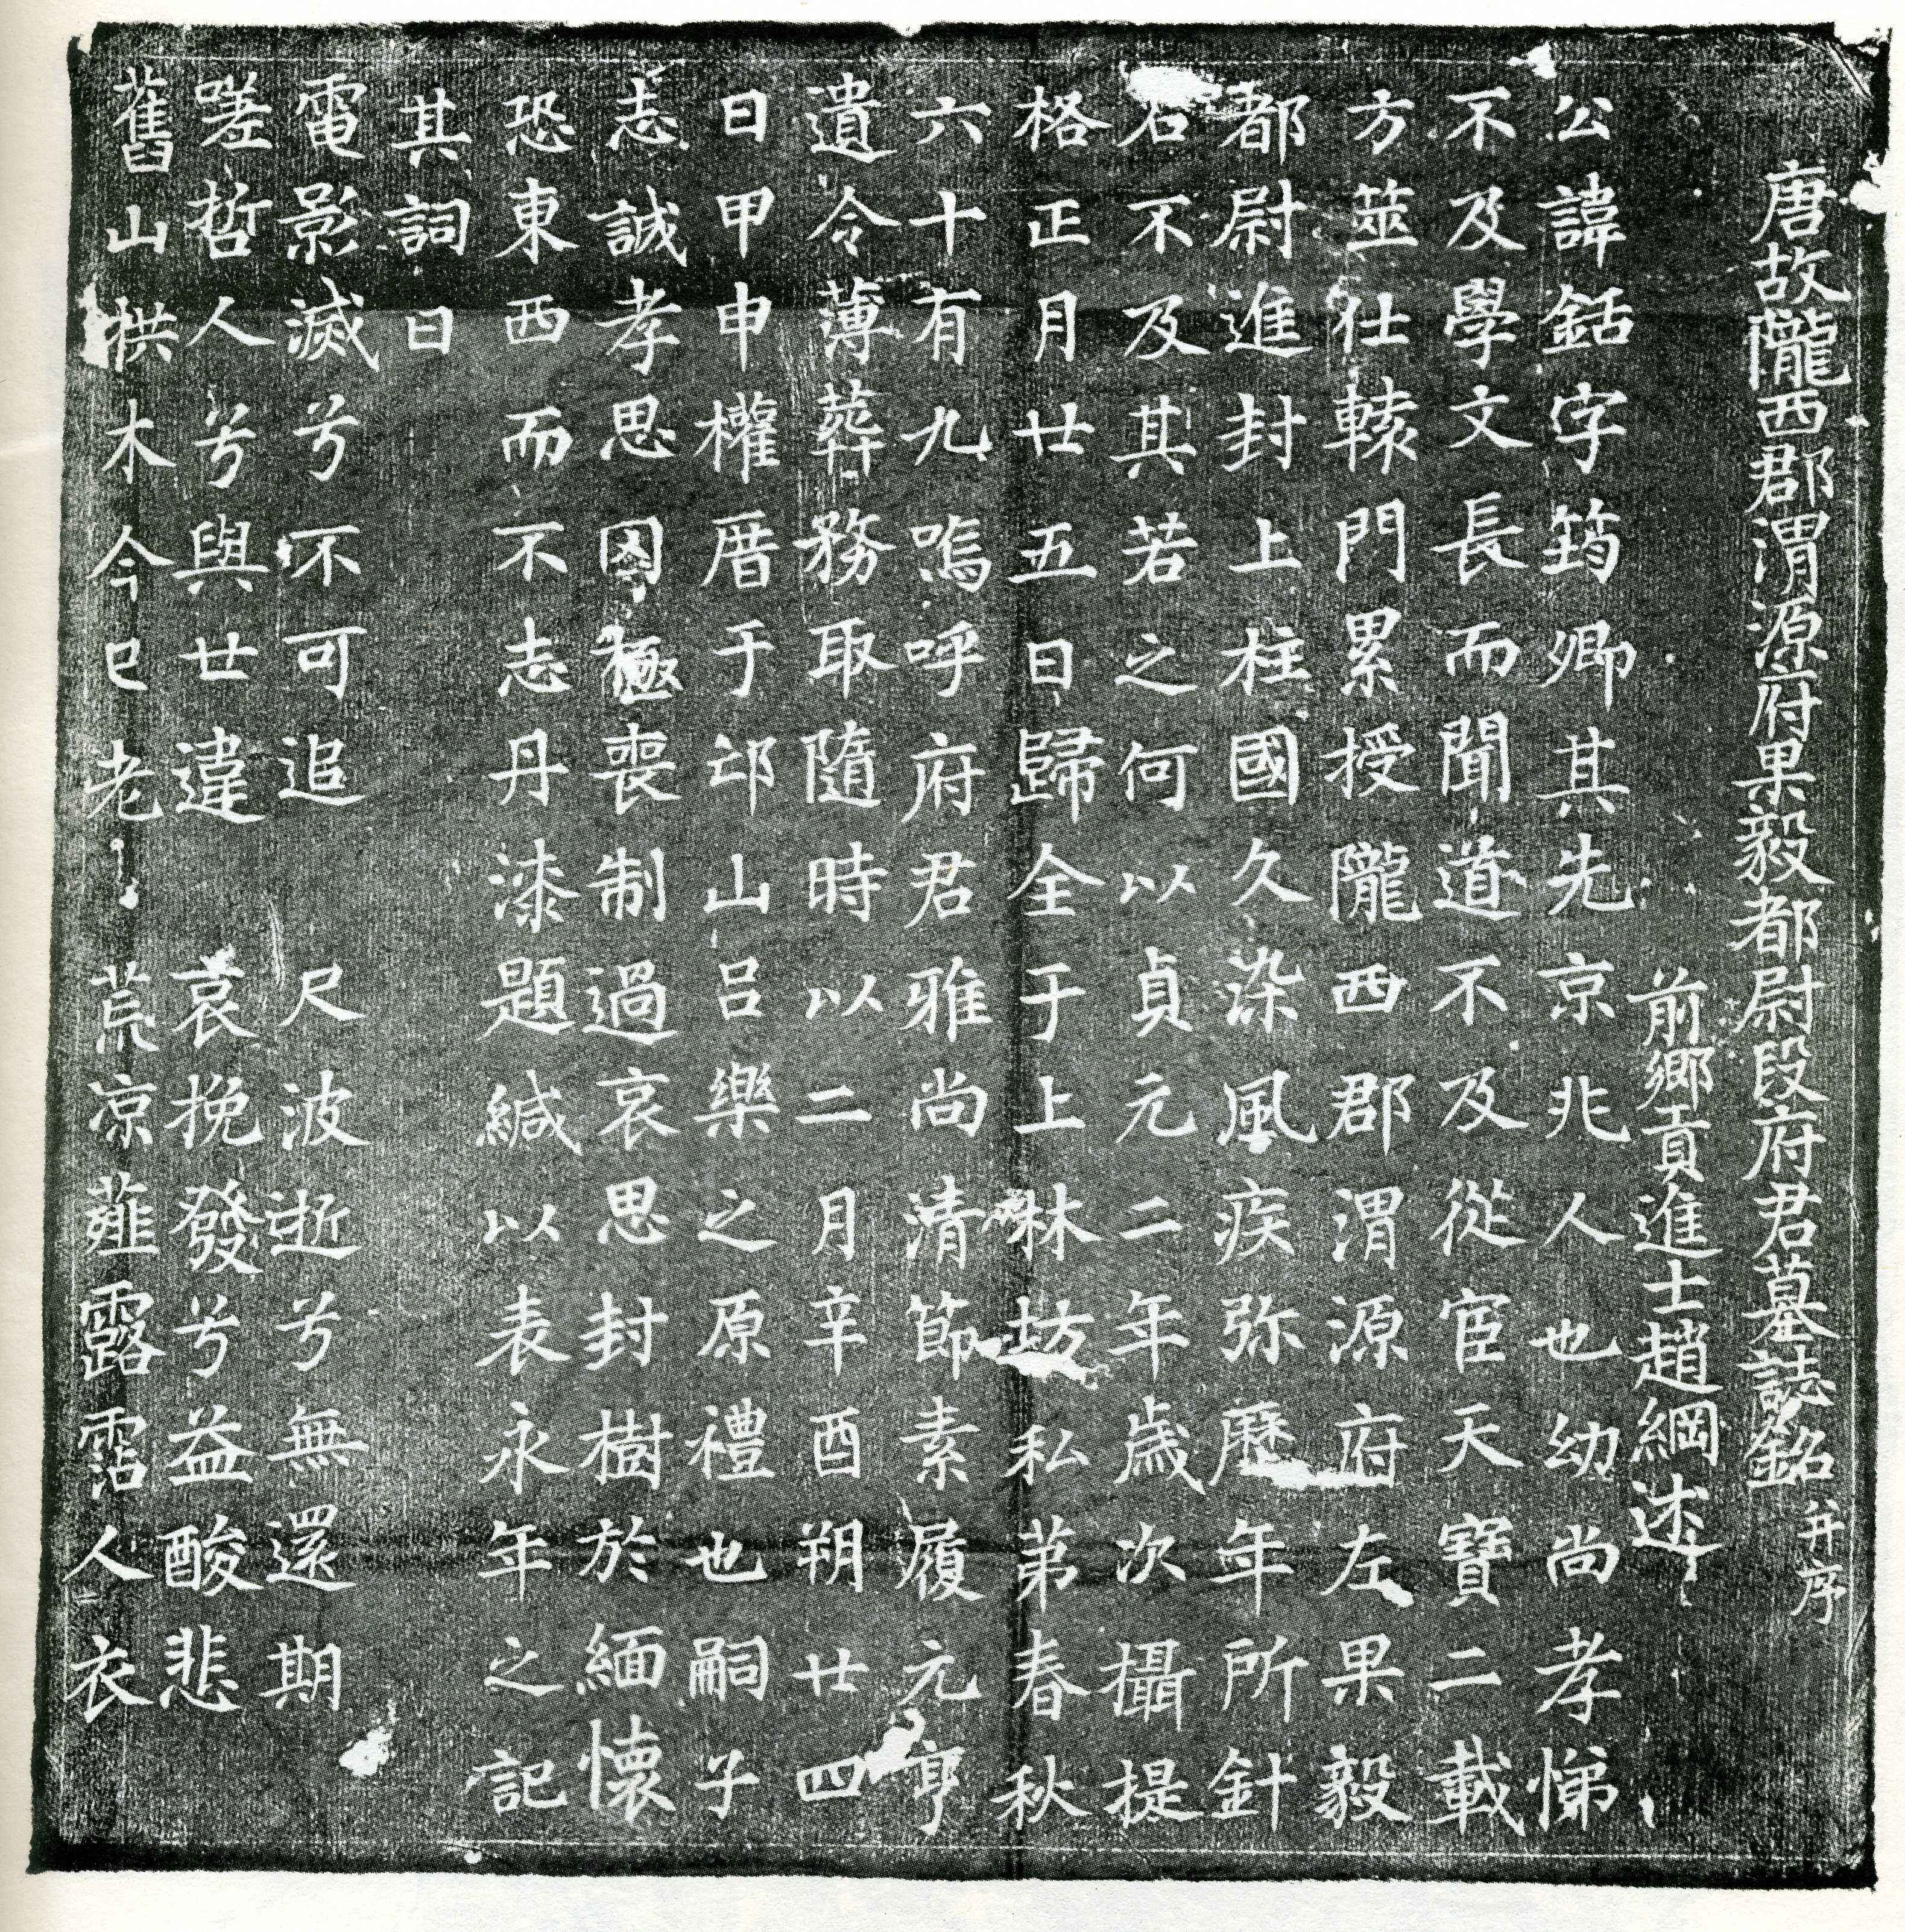 唐故隴西郡渭源府果毅都尉段府君墓誌銘并序
前鄉貢進士趙綱述
公諱銛字筠卿其先京兆人也幼尚孝悌
不及學文長而聞道不及從宦天寶二載
方筮仕轅門累授隴西郡渭源府左果毅
都尉進封上柱國久染風疾弥歷年所針
石不及其若之何以貞元二年歲次攝提
格正月廿五日歸全于上林坊私弟春秋
六十有九嗚呼府君雅尚清節素履元亨
遺令薄葬務取隨時以二月辛酉朔廿四
日甲申權厝于邙山呂樂之原禮也嗣子
志誠孝思罔極喪制過哀思封樹於緬懷
恐東西而不志丹漆題緘以表永年之記
其詞曰
電影滅兮不可追 尺波逝兮無還期
嗟哲人兮與世違 哀挽發兮益酸悲
舊山拱木今已老 荒涼薤露霑人衣